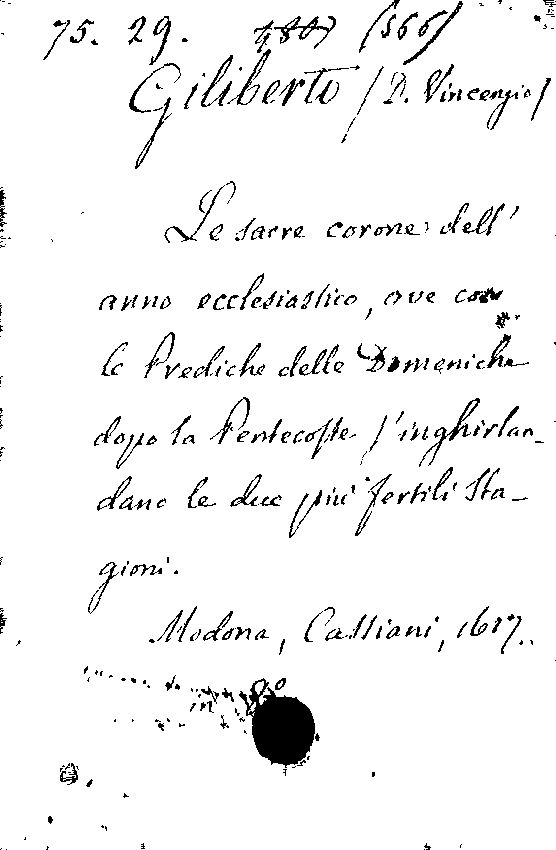 75. 29. 4807 (566)
Giliberto (D. Vincenzio)
Le sacre corone dell'
anno ecclesiastico, ove con
le Prediche delle Domeniche
dopo la Pentecoste s'inghirlan-
dano le due più fertili Sta-
gioni.
Modona, Cassiani, 1617.
in 8º